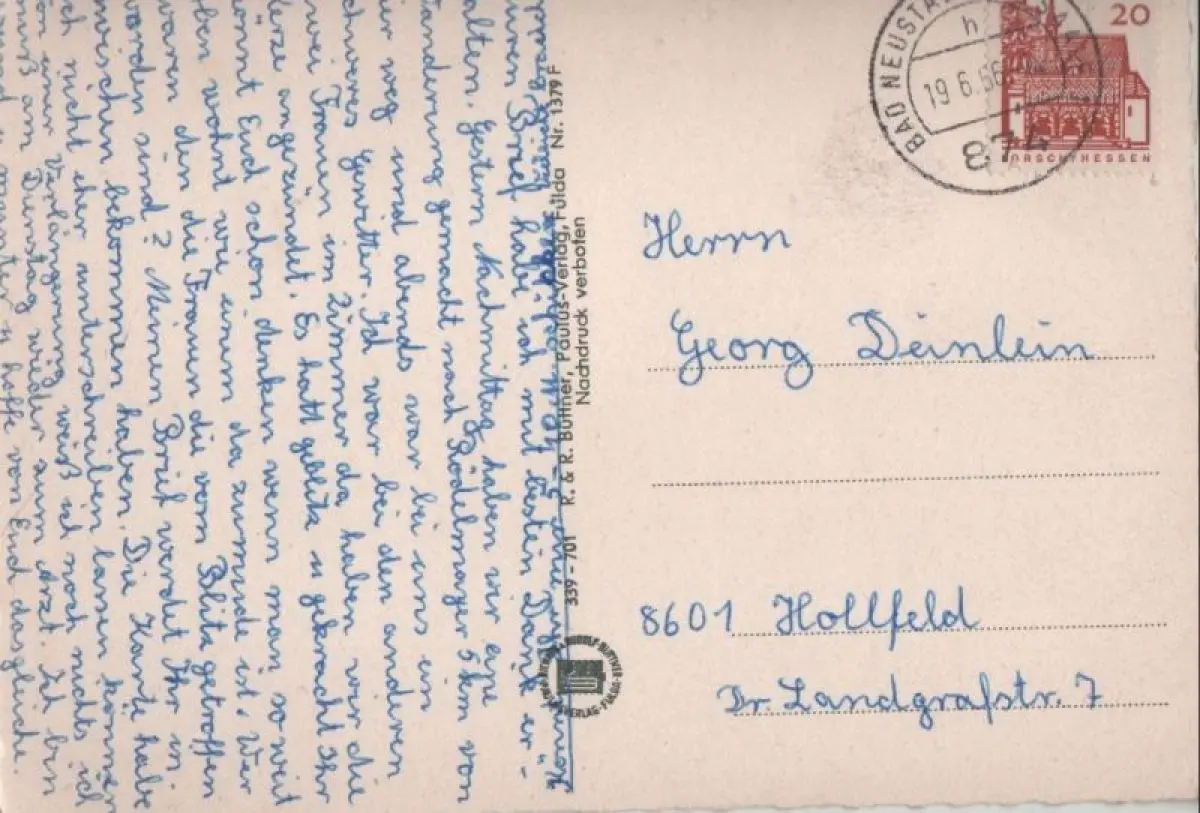 BAD NEUSTA
h
19.6.66
874
20
LORSCH/HESSEN
Herrn
Georg Deinlein
8601 Hollfeld
Dr. Landgrafstr. 7
339-701 R. & R. Büttner, Paulus-Verlag, Fulda Nr. 1379 F
Nachdruck verboten
Euren Brief habe ich mit bestein Dank er-
halten. Gestern Nachmittag haben wir eine
Wanderung gemacht nach Rödelmayer 5 km von
hier weg und abends war bei uns ein
schweres Gewitter. Ich war bei den anderen
zwei Frauen im Zimmer da haben wir die
Kerze angezündet. Es hatt geblitz u gekracht Ihr
könnt Euch schon denken wenn man so weit
oben wohnt wie einem da zumude ist. Wer
waren den die Frauen die vom Blitz getroffen
worden sind? Meinen Brief werdet Ihr in-
zwischen bekommen haben. Die Karte habe
ich nicht eher unterschreiben lassen können
von einer Verlängerung weiß ich noch nichts ich
muß am Dienstag wieder zum Arzt. Ich bin
u hoffe von Euch dasgleiche.